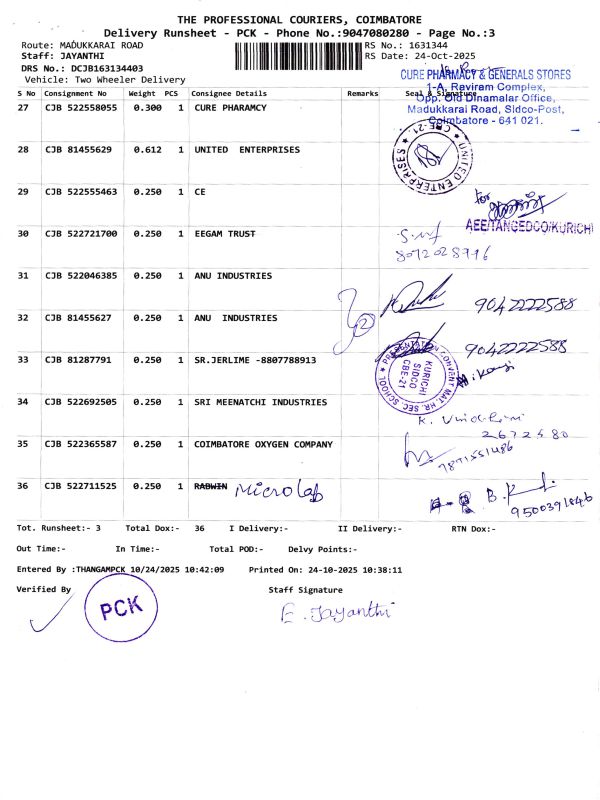 THE PROFESSIONAL COURIERS, COIMBATORE
Delivery Runsheet - PCK - Phone No.:9047080280 - Page No.:3
Route: MADUKKARAI ROAD RS No.: 1631344
Staff: JAYANTHI RS Date: 24-Oct-2025
DRS No.: DCJB163134403
Vehicle: Two Wheeler Delivery
CURE PHARMACY & GENERALS STORES
1-A, Raviram Complex,
Opp. Old Dinamalar Office,
Madukkarai Road, Sidco-Post,
Coimbatore - 641 021.
S No Consignment No Weight PCS Consignee Details Remarks Seal & Signature
27 CJB 522558055 0.300 1 CURE PHARAMCY
28 CJB 81455629 0.612 1 UNITED ENTERPRISES
UNITED ENTERPRISES CBE-21
29 CJB 522555463 0.250 1 CE
for
AEE/TANGEDCO/KURICHI
30 CJB 522721700 0.250 1 EEGAM TRUST
8072028996
31 CJB 522046385 0.250 1 ANU INDUSTRIES
9042222588
32 CJB 81455627 0.250 1 ANU INDUSTRIES
9042222588
33 CJB 81287791 0.250 1 SR.JERLIME -8807788913
PRESENTATION CONVENT MAT. HR. SEC. SCHOOL
KURICHI
SIDCO
CBE-21
34 CJB 522692505 0.250 1 SRI MEENATCHI INDUSTRIES
2672480
35 CJB 522365587 0.250 1 COIMBATORE OXYGEN COMPANY
7871551486
36 CJB 522711525 0.250 1 RABWIN Microlab
9500391846
Tot. Runsheet:- 3 Total Dox:- 36 I Delivery:- II Delivery:- RTN Dox:-
Out Time:- In Time:- Total POD:- Delvy Points:-
Entered By :THANGAMPCK 10/24/2025 10:42:09 Printed On: 24-10-2025 10:38:11
Verified By Staff Signature
PCK
E. Jayanthi